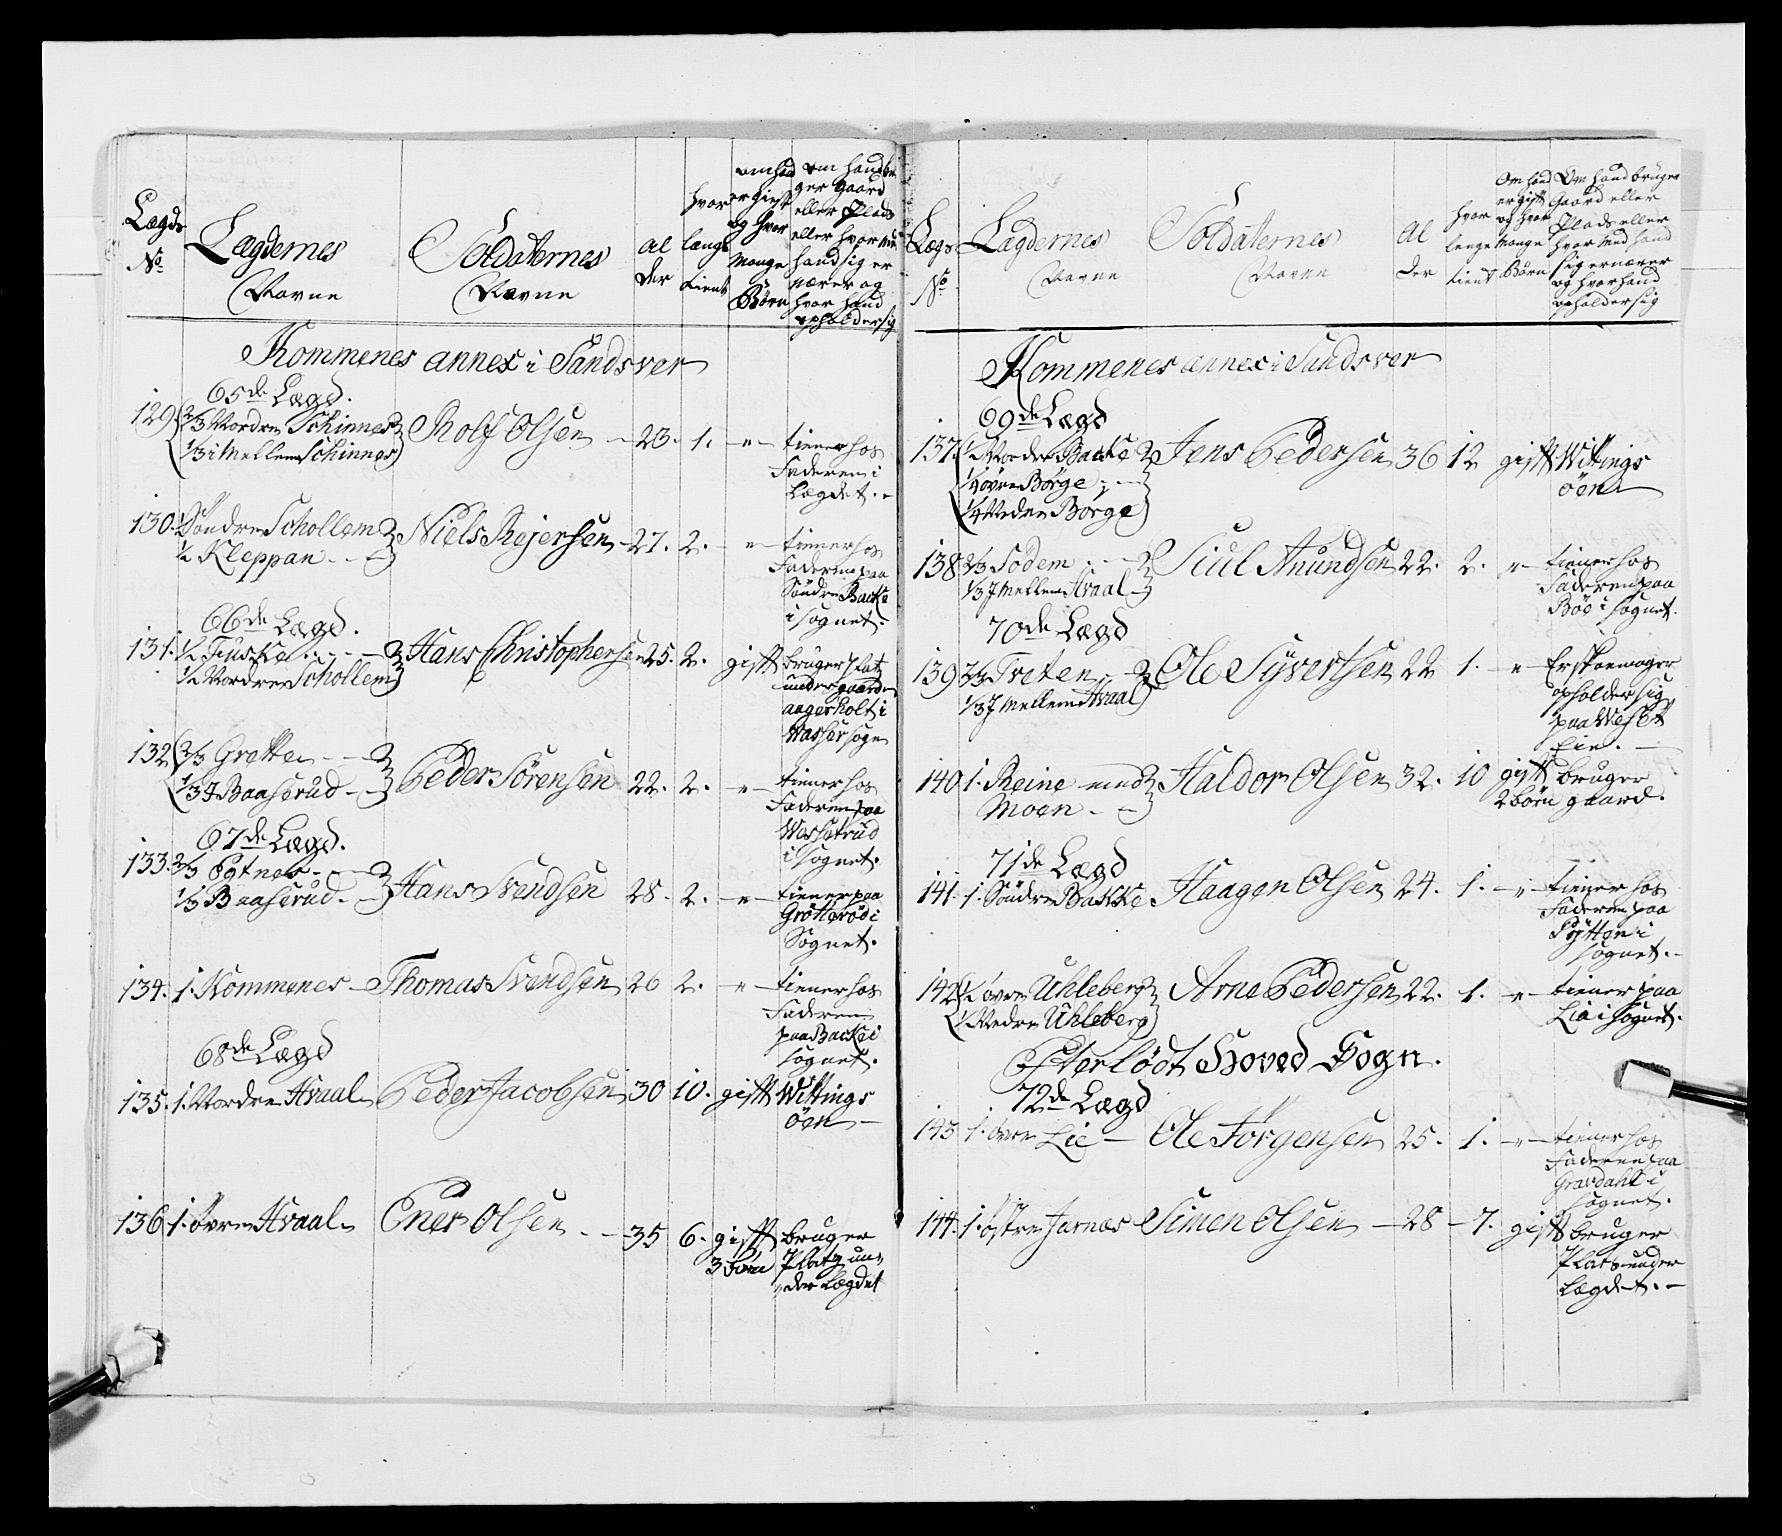 Lægds No | Lægdernes Navne | Soldaternes Navne | Al der | hvor længe tient | om hand er gift og hvor mange Börn | om hand bruger gaard eller Plads eller hvor med hand sig ernærer og hvor hand opholder sig
Kommenes annex i Sandsver
65de Lægd.
129 2/3 Nordre Schinnes Rolf Olsen 23. 1. „ tiener hos
1/3 i Mellem Schinnes Faderen i
Lægdet.
130. 1/2 Söndre Schollem Niels Rejersen 27. 2. „ tiener hos
1/2 Kleppan Faderen paa
Söndre Backe
i Sognet.
66de Lægd.
131. 1/2 Tuske Hans Christophersen 25. 2. gift bruger Plat
1/2 Nordre Schollem under gaarden
aagerholt i
Hasser Sogn
132 2/3 Grette Peder Sörensen 22. 2. „ tiener hos
1/3 J Baaserud Faderen paa
i Sognet.
67de Lægd.
133. 2/3 Hans Svendsen 28. 2. „ tiener paa
1/3 Baaserud Grötteröd i
Sognet.
134. 1. Kommenes Thomas Svendsen 26 2. „ tiener hos
Faderen
paa Backe i
Sognet.
68de Lægd
135. 1. Nordre Hvaal Peder Jacobsen 30 10. gift Wittings
öen
136 1. övre Hvaal Ener Olsen 35 6. gift bruger
3 börn Platz un-
der Lægdet
Lægs No | Lægdernes Navne | Soldaternes Navne | Al der | hvor lenge tient | Om hand er gift og hvor mange Börn | Om hand bruger Gaard eller Plads eller hvor med hand sig ernærer og hvor hand opholder sig
Kommenes annex i Sandsver
69de Lægd
137 1/2 Nordre Backe Jens Pedersen 36 12 gift Wittings
1/4 övre Börge öen
1/4 Nedre Borge
138 2/3 Södem Siul Anundsen 22. 2. „ tiener hos
1/3 J Mellem Hvaal Faderen paa
Böe i Sognet.
70de Lægd
139 2/3 Treten Ole Syvertsen 22 1. „ Er Skoemager
1/3 J Mellem Hvaal opholder sig
paa Weset
Eie.
140 1. Reine med Haldor Olsen 32. 10 gift bruger
Moen 2 börn gaard.
71de Lægd
141. 1. Söndre Bakke Haagen Olsen 24. 1. „ tiener hos
Faderen paa
i
Sognet.
142 1/2 övre Uhleberg Arne Pedersen 22. 1. „ tiener paa
1/2 Nedre Uhleberg Lia i Sognet.
Efterlödt Hoved Sogn.
72de Lægd
143 1. övre Lie Ole Jörgensen 25. 1. „ tiener hos
Faderen paa
Gravdahl i
Sognet.
144. 1. östre Jarnæs Simen Olsen 28 7. gift bruger
Plats under
Lægdet.